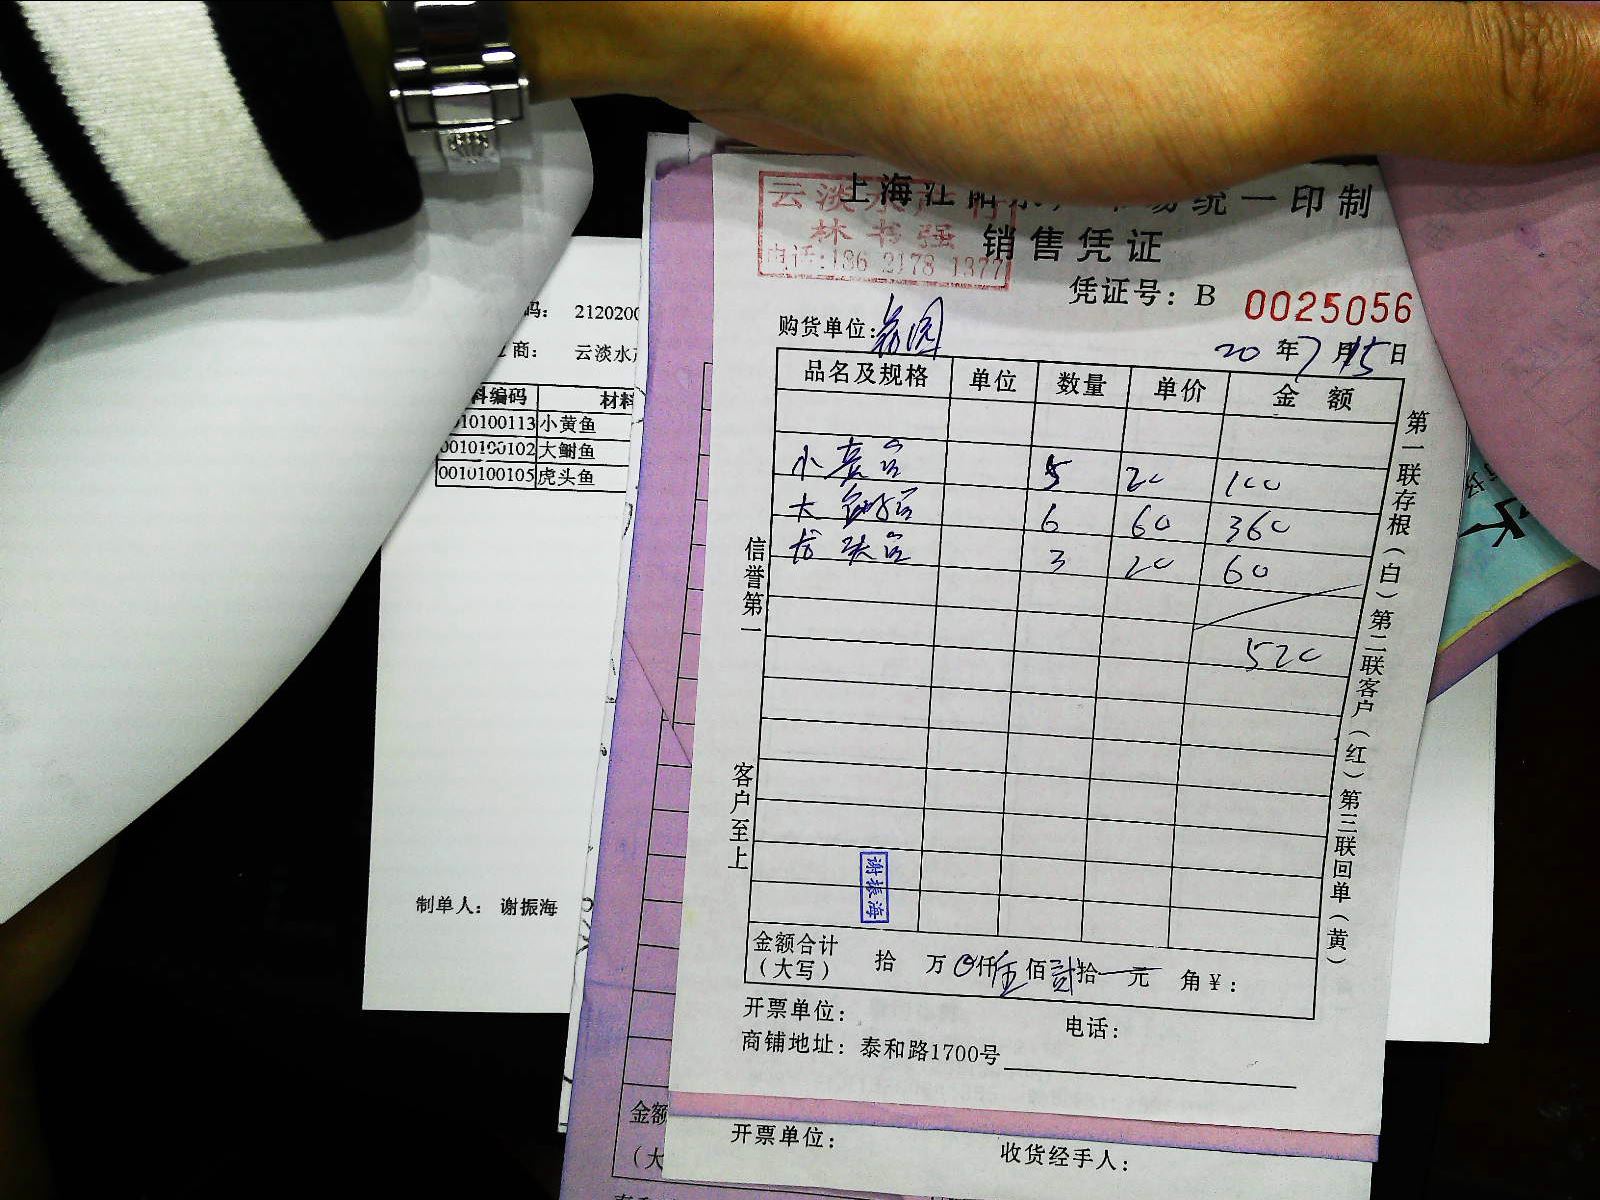 云淡水产
林书强
电话:186 2178 1377
上海江
统一印制
销售凭证
凭证号: B 0025056
购货单位:
20 年 7 月 15 日
品名及规格 单位 数量 单价 金额
小黄鱼 5 20 100
大鲥鱼 6 60 360
虎头鱼 3 20 60
520
信誉第一
客户至上
第一联存根(白)第二联客户(红)第三联回单(黄)
谢振海
金额合计
(大写) 拾 万 0仟伍佰贰拾 元 角¥:
开票单位: 电话:
商铺地址: 泰和路1700号
码: 212020
商: 云淡水
料编码 材料
10100113 小黄鱼
0010100102 大鲥鱼
0010100105 虎头鱼
制单人: 谢振海
金额
(大
开票单位: 收货经手人: